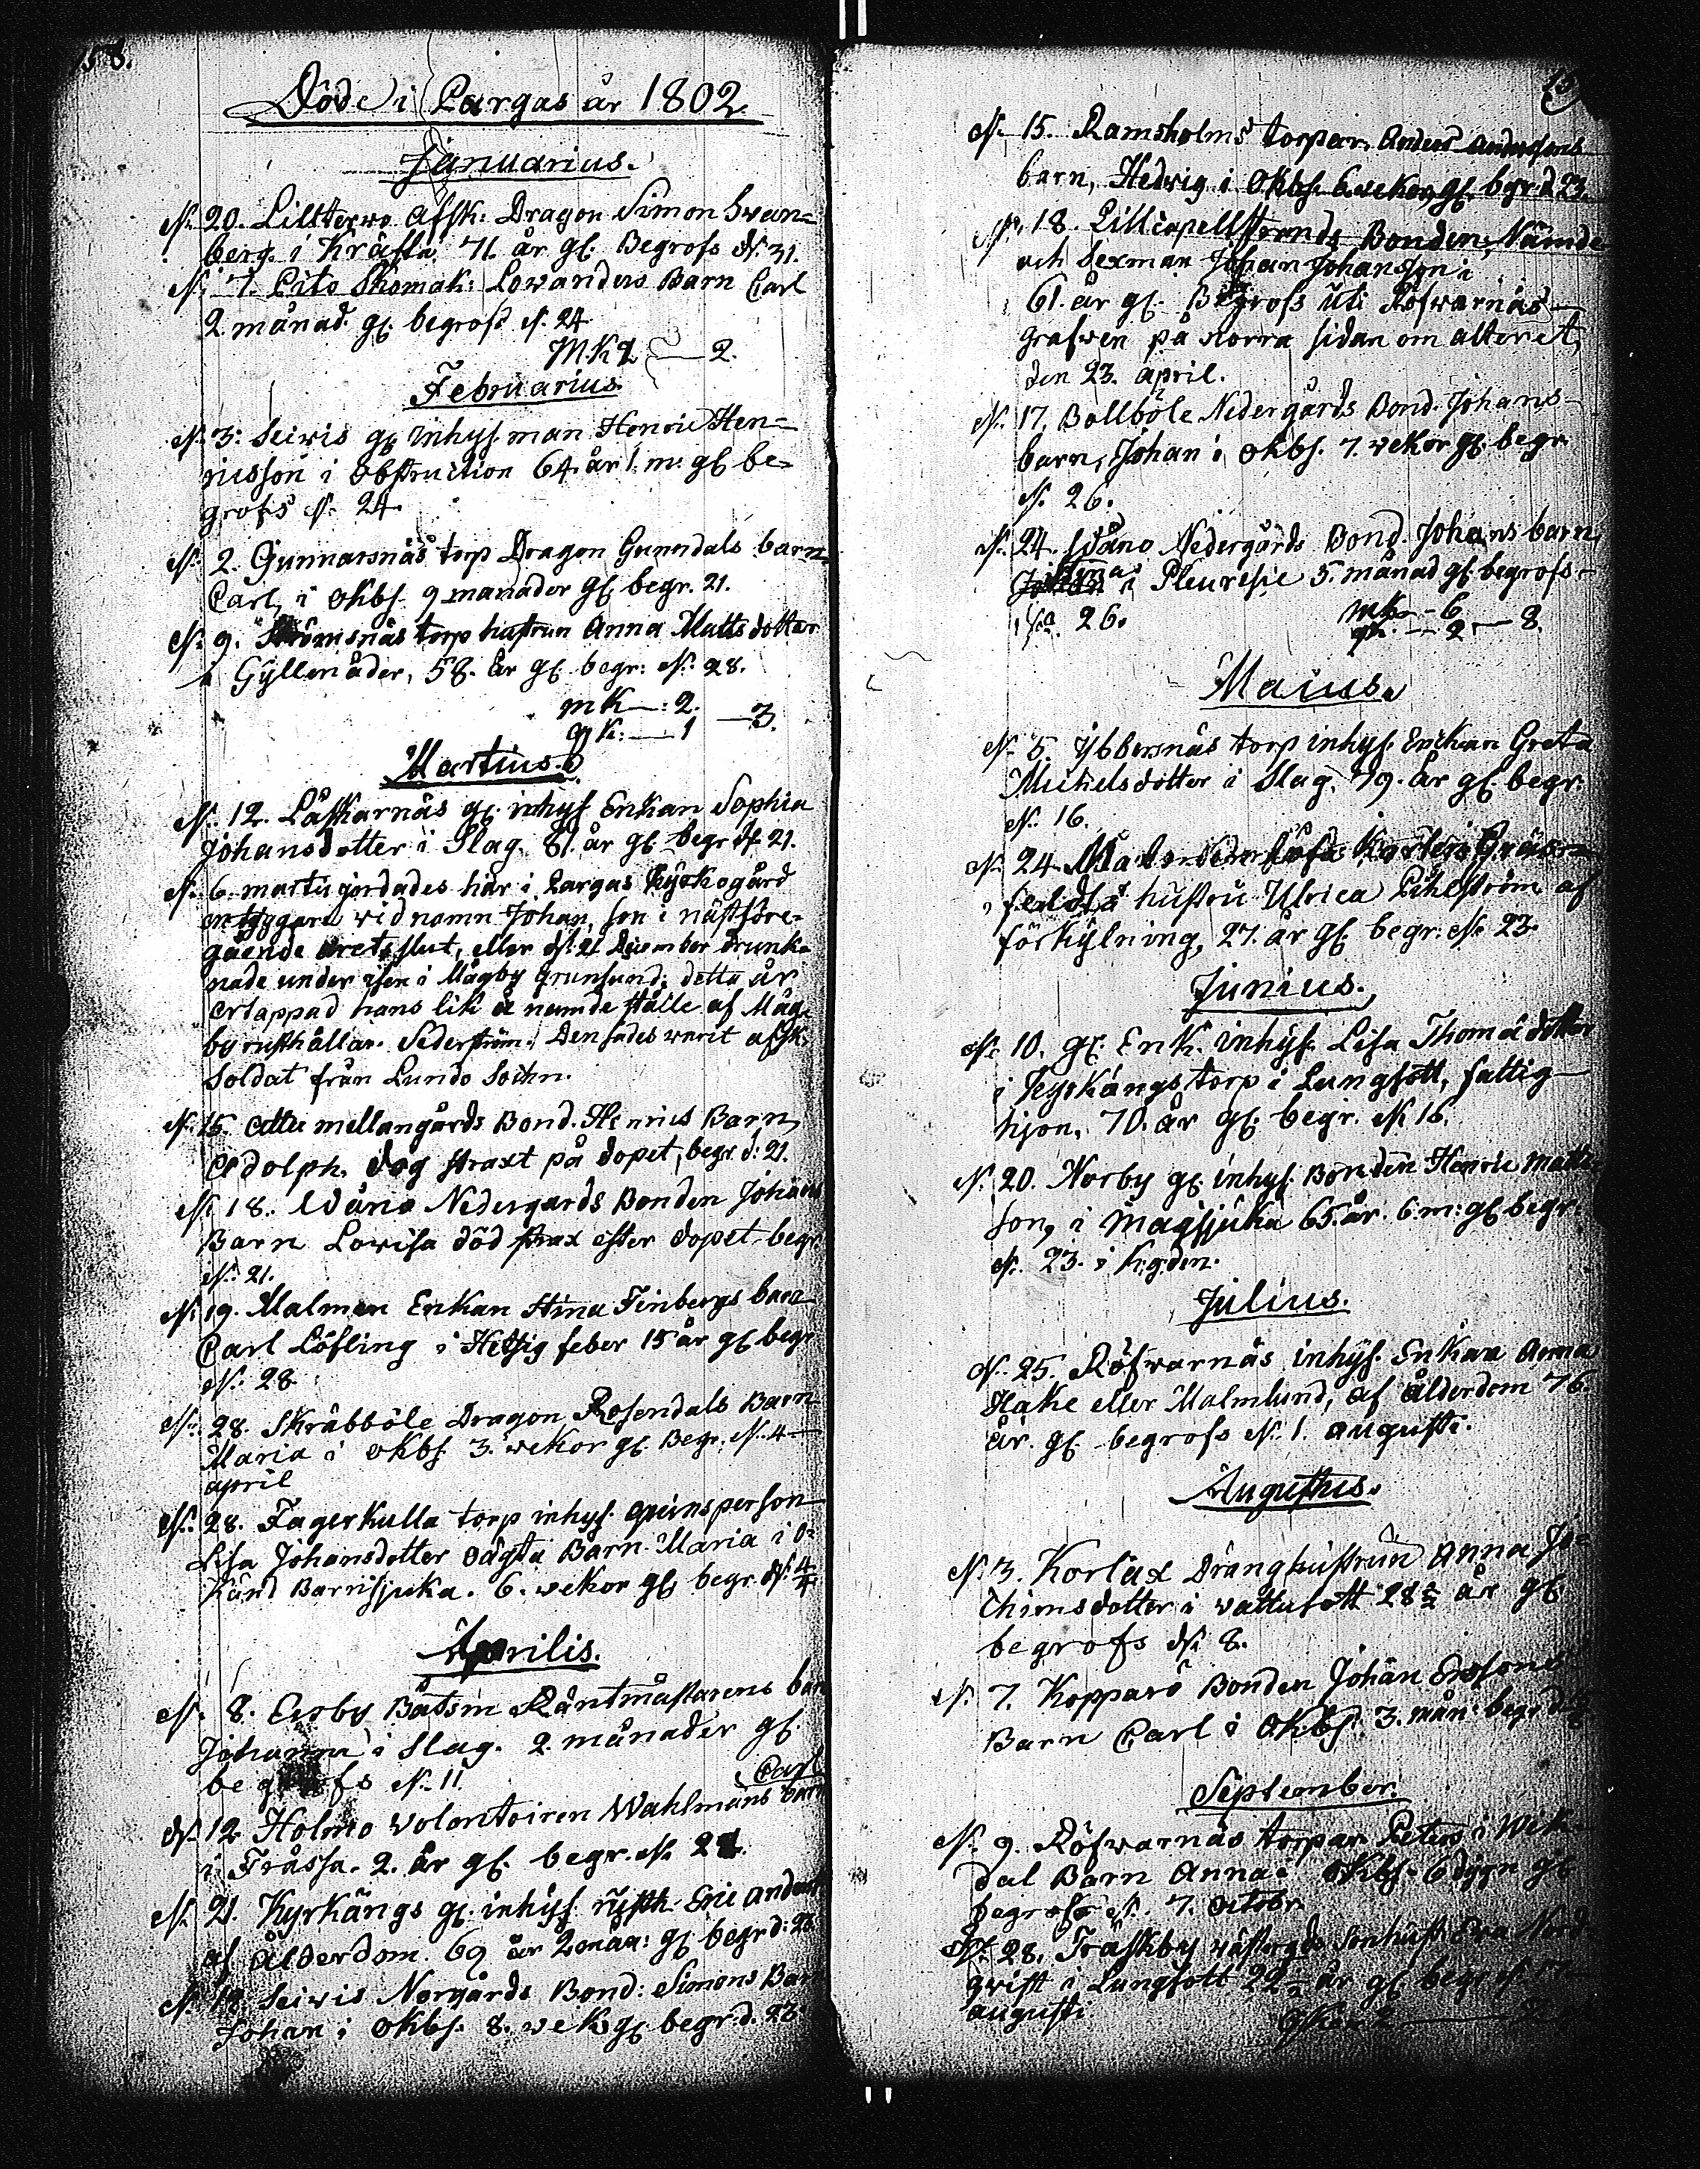 158.
Döde i Pargas år 1802
Januarius.
d. 20. Lilltervo Afsk: Dragon Simon Swan=
berg. i Kräfta 71. år gl. Begrofs d. 31.
d. 7. Pito Skomak: Lowanders Barn Carl
2 månad. gl. begrofs d. 24
M.K 2 — 2.
Februarius
d. 3. Seivis gl. inhys. man Henric Hen=
ricsson i Obstruction 64. år 1. m: gl be=
grofs d. 24.
d. 2. Gunnarsnäs torp Dragon Gunndals barn
Carl, i Okbs. 9 manader gl. begr. 21.
d. 9. Strömsnäs torp hustrun Anna Matts dotter
i Gyllenåder, 58. år gl. begr: d. 28.
m K—: 2.
q K: — 1 — 3.
Martius.
d. 12. Låskarnäs gl. inhys Enkan Sophia
Johansdotter i Slag. 81. år gl begr d. 21.
d. 6. martii jordades här i Pargas Kyrkogård
en tiggare vid namn Johan, som i nästföre-
gående årets slut, eller d. 21 December drunk-
nade under isen i Mågby Grunsund; detta år
ertappad hans lik å nämde ställe af Måg-
by rusthållar. Sederström. Den sades warit afsk.
Soldat från Lundo Sochn.
d. 15. Attu mellangårds Bond. Henrics Barn
Adolph. dog straxt på dopet, begr. d: 21.
d. 18. Wåno Nedergards Bonden Johans
Barn Lowisa död strax efter dopet begr
d. 21.
d. 19. Malmen Enkan Stina Finbergs barn
Carl Löfling i Hetsig feber 15 år gl begr
d. 28
d. 28. Skräbböle Dragon Rosendals Barn
Maria i okbs 3. wekor gl. Begr. d. 4
april
d. 28. Fagerkulla torp inhys. qvinsperson
Lisa Johansdotter oägta Barn Maria i o=
känd Barnsjuka. 6. wekor gl. begr. d. 4/4
Aprilis.
d. 8. Ersby Båtsm Räntmästarens barn
Johanna i Slag. 2. månader gl.
begrofs d. 11.
Carl
d. 12 Holmo Volontairen Wahlmans barn
i Fråssa. 2. år gl. begr. d. 21.
d. 21. Kyrkängs gl. inhys. rusth. Eric Anders
af Ålderdom. 69 år 2 mån: gl begr d:
d. 18. Seivis Norgårds Bond: Simons Barn
Johan i okbs. 8. wek gl. begr. d. 23.
d. 15. Ramsholms torpar. Anders Andersons
barn, Hedvig i Okbs. 6 wekor gl. begr. d 23.
d. 18. Lillcapellstrands Bonden, Nämde
och Sexman Johan Johansson i
61. år gl. Begrofs uti Röfvarnäs
grafven på norra sidan om alteret,
den 23. april.
d. 17. Bollböle Nedergårds Bond. Johans
barn, Johan i okbs. 7. wekor gl. begr.
d. 26.
d. 24. Wåno Nedergårds Bond. Johans barn
i Pleuresie 5. månad gl. begrofs
d. 26.
mk — 6
qk. — 2 — 8.
Maius.
d. 5. Ybbersnäs torp inhys. Enckan Greta
Michelsdotter i Slag. 79. år gl begr.
d. 16.
d. 24
hustru Ulrica Pihlström af
förkylning, 27. år gl. begr. d. 23.
Junius.
d. 10. gl. Enk. inhys. Lisa Thomä dotter
i Kyrkängs torp i Lungsott, fattig-
hjon. 70. år gl. begr. d. 16.
d. 20. Norby gl. inhys. Bonden Henric Matts
son, i Magsjuka 65. år. 6. m: gl begr.
d. 23. i K.g.den.
Julius.
d. 25. Röfwarnäs inhys. Enkan Anna
Hake eller Malmlund, af ålderdom 76.
år. gl. begrofs d. 1. augusti.
Augusthus.
d. 3. Korlax Dränghustrun Anna Jo=
chimsdotter i wattusott 28 1/2 år gl
begrofs d. 8.
d. 7. Kopparö Bonden Johan Erssons
Barn Carl i Okbs. 3. mån: begr d
September.
d. 9. Röfwarnäs torpar. Peters i Wik-
dal Barn Anna i Okbs. 6 dygn gl
begrofs d. 7. Octobr.
d. 28. Träskby wästergds Sonhust. Ewa Nord
qvist i Lungsott 22 1/2 år gl begr d. 17
augusti